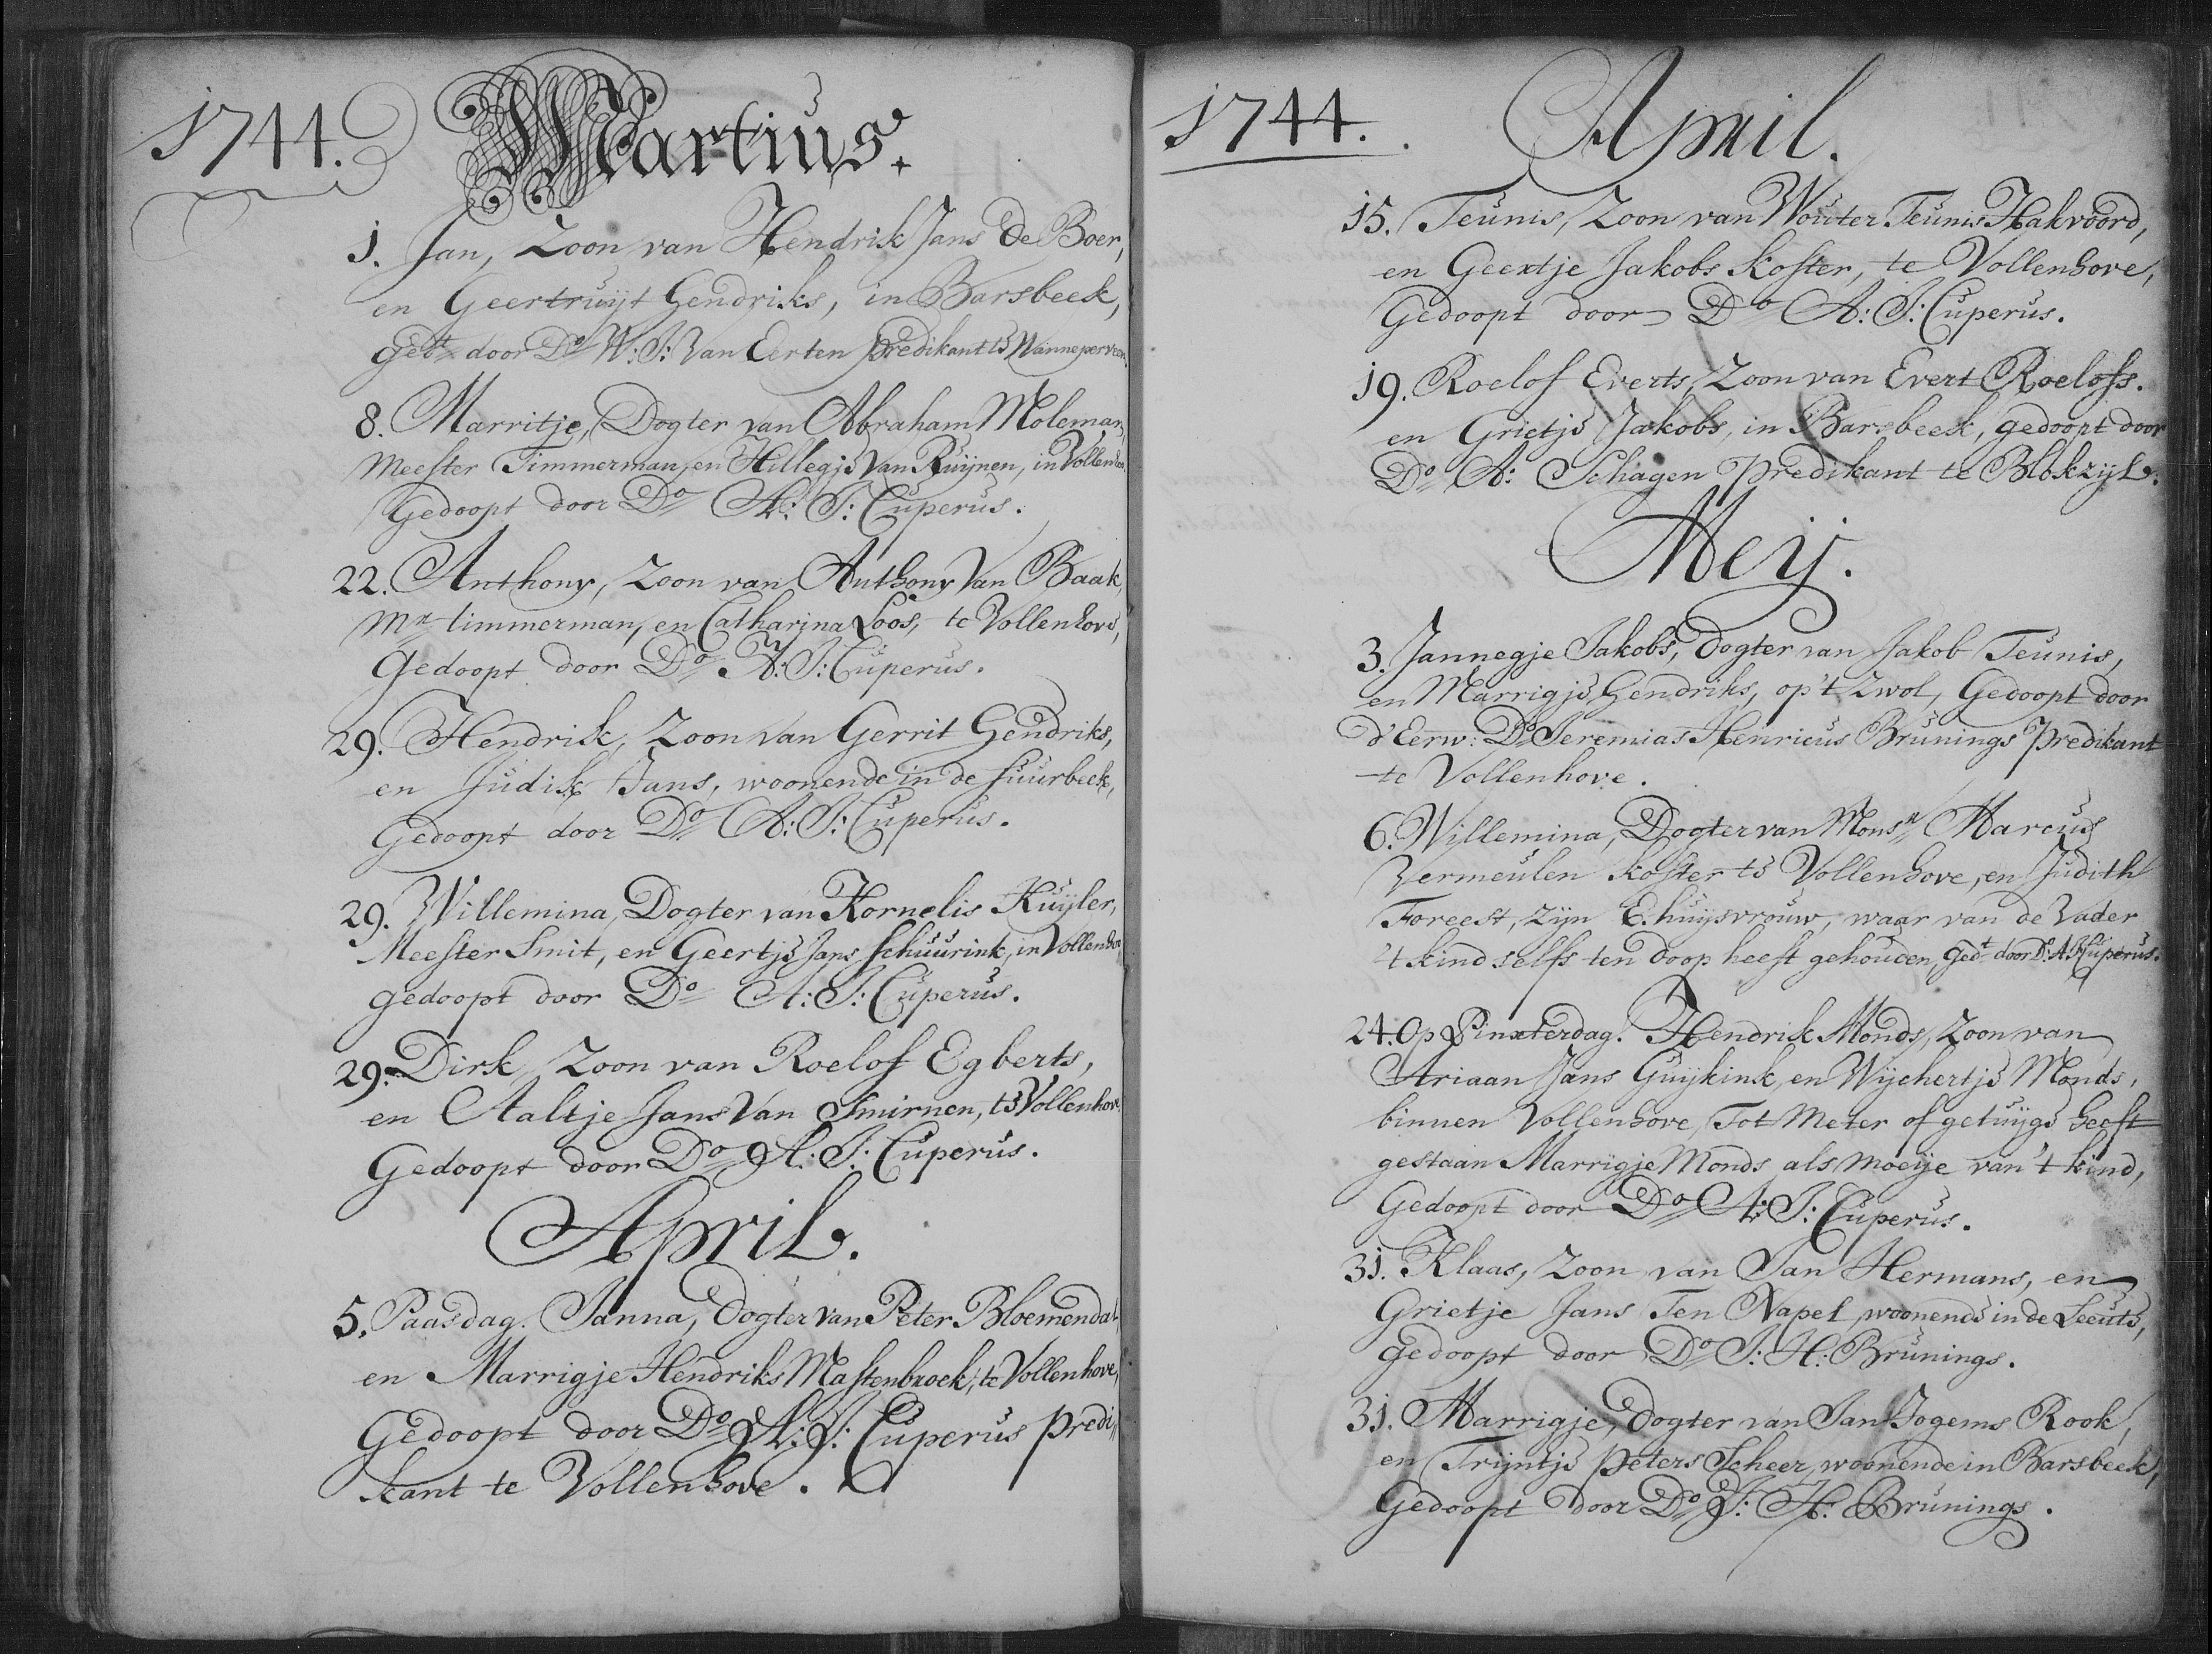 1744. Martius.
1. Jan, Zoon van Hendrik Jans de Boer,
en Geertruijt Hendriks, in Barsbeek,
gedt door Do W: J: Van Eerten predikant te Wanneperveen
8. Marritje, Dogter van Abraham Moleman,
Meester Timmerman, en Hillegje Van Ruijnen, in Vollenhov
Gedoopt door Do A: J: Cuperus.
22. Anthony, Zoon van Anthony Van Baak,
Mr timmerman, en Catharina Loos, te Vollenhove,
Gedoopt door Do A: J: Cuperus.
29. Hendrik, Zoon van Gerrit Hendriks,
en Judik Jans, woonende in de suurbeek,
Gedoopt door Do A: J: Cuperus.
29. Willemina, Dogter van Kornelis Kuyler,
Meester Smit, en Geertje Jans schuurink, in Vollenhov
gedoopt door Do A: J: Cuperus.
29. Dirk, Zoon van Roelof Egberts,
en Aaltje Jans Van Smirnen, te Vollenhov
Gedoopt door Do A: J: Cuperus.
April.
5. Paasdag. Janna, Dogter van Peter Bloemendal,
en Marrigje Hendriks Mastenbroek, te Vollenhove,
Gedoopt door Do A: J: Cuperus predi
kant te Vollenhove.
1744. April.
15. Teunis, Zoon van Wouter Teunis Hakvoord,
en Geertje Jakobs Koster, te Vollenhove,
Gedoopt door Do A: J: Cuperus.
19. Roelof Everts, Zoon van Evert Roelofs.
en Grietje Jakobs, in Barsbeek, gedoopt door
Do A: Schagen Predikant te Blokzyl.
Meij.
3. Jannegje Jakobs, Dogter van Jakob Teunis,
en Marrigje Hendriks, op't Zwol, Gedoopt door
d'Eerw: Do Jeremias Henricus Brunings Predikant
te Vollenhove.
6. Willemina, Dogter van Monsr Marcus
Vermeulen koster te Vollenhove, en Judith
Foreest, zijn E. huijsvrouw, waar van de Vader
't kind selfs ten doop heeft gehouden, gedt door Do: A: J: Cuperus.
24. Op Pinxterdag. Hendrik Monds, Zoon van
Ariaan Jans Guijkink, en Wijchertje Monds,
binnen Vollenhove, Tot Meter of getuijge heeft
gestaan Marrigje Monds als moeije van't kind,
Gedoopt door Do A: J: Cuperus.
31. Klaas, Zoon van Jan Hermans, en
Grietje Jans Ten Napel, woonende in de Leeute,
Gedoopt door Do J: H: Brunings.
31. Marrigje, Dogter van Jan Jogems Rook,
en Trijntje Peters Scheer, woonende in Barsbeek,
Gedoopt door Do J: H: Brunings.